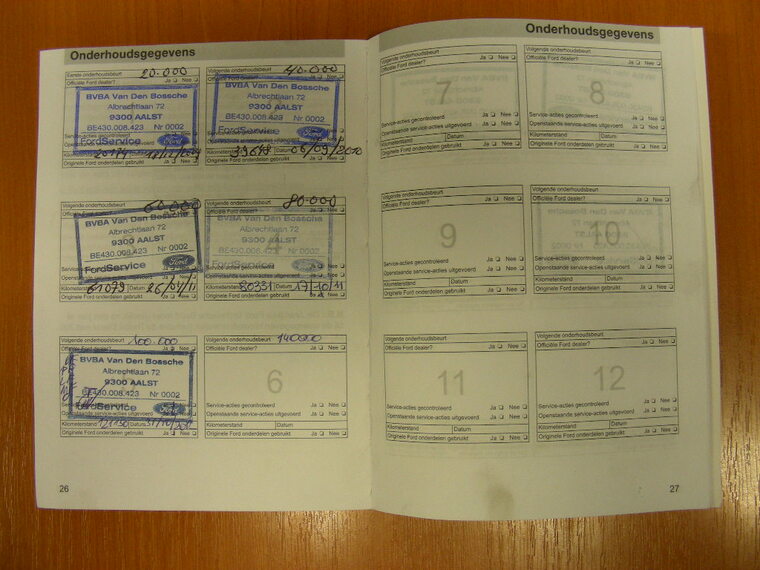 Onderhoudsgegevens
Eerste onderhoudsbeurt 20.000
Officiële Ford dealer? Ja Nee
BVBA Van Den Bossche
Albrechtlaan 72
9300 AALST
BE430.008.423 Nr 0002
FordService Ford
Kilometerstand 20174 Datum
Originele Ford onderdelen gebruikt Ja Nee
Volgende onderhoudsbeurt 40.000
Officiële Ford dealer?
BVBA Van Den Bossche
Albrechtlaan 72
9300 AALST
BE430.008.423 Nr 0002
FordService Ford
Kilometerstand 39648 Datum 06/09/2010
Originele Ford onderdelen gebruikt Ja Nee
Volgende onderhoudsbeurt 60.000
Officiële Ford dealer?
BVBA Van Den Bossche
Albrechtlaan 72
9300 AALST
BE430.008.423 Nr 0002
FordService Ford
Kilometerstand 61079 Datum 26/04/11
Originele Ford onderdelen gebruikt Ja Nee
Volgende onderhoudsbeurt 80.000
Officiële Ford dealer?
BVBA Van Den Bossche
Albrechtlaan 72
9300 AALST
BE430.008.423 Nr 0002
FordService Ford
Service-acties gecontroleerd Ja Nee
Openstaande service-acties uitgevoerd Ja Nee
Kilometerstand 80331 Datum 17/10/11
Originele Ford onderdelen gebruikt Ja Nee
Volgende onderhoudsbeurt 100.000
Officiële Ford dealer? Ja Nee
BVBA Van Den Bossche
Albrechtlaan 72
9300 AALST
BE430.008.423 Nr 0002
FordService Ford
Kilometerstand 121130 Datum
Originele Ford onderdelen gebruikt Ja Nee
Volgende onderhoudsbeurt 140000
Officiële Ford dealer? Ja Nee
6
Service-acties gecontroleerd Ja Nee
Openstaande service-acties uitgevoerd Ja Nee
Kilometerstand Datum
Originele Ford onderdelen gebruikt Ja Nee
26
Onderhoudsgegevens
Volgende onderhoudsbeurt
Officiële Ford dealer? Ja Nee
7
Service-acties gecontroleerd Ja Nee
Openstaande service-acties uitgevoerd Ja Nee
Kilometerstand Datum
Originele Ford onderdelen gebruikt Ja Nee
Volgende onderhoudsbeurt
Officiële Ford dealer? Ja Nee
8
Service-acties gecontroleerd Ja Nee
Openstaande service-acties uitgevoerd Ja Nee
Kilometerstand Datum
Originele Ford onderdelen gebruikt Ja Nee
Volgende onderhoudsbeurt
Officiële Ford dealer? Ja Nee
9
Service-acties gecontroleerd Ja Nee
Openstaande service-acties uitgevoerd Ja Nee
Kilometerstand Datum
Originele Ford onderdelen gebruikt Ja Nee
Volgende onderhoudsbeurt
Officiële Ford dealer? Ja Nee
10
Service-acties gecontroleerd Ja Nee
Openstaande service-acties uitgevoerd Ja Nee
Kilometerstand Datum
Originele Ford onderdelen gebruikt Ja Nee
Volgende onderhoudsbeurt
Officiële Ford dealer? Ja Nee
11
Service-acties gecontroleerd Ja Nee
Openstaande service-acties uitgevoerd Ja Nee
Kilometerstand Datum
Originele Ford onderdelen gebruikt Ja Nee
Volgende onderhoudsbeurt
Officiële Ford dealer? Ja Nee
12
Service-acties gecontroleerd Ja Nee
Openstaande service-acties uitgevoerd Ja Nee
Kilometerstand Datum
Originele Ford onderdelen gebruikt Ja Nee
27